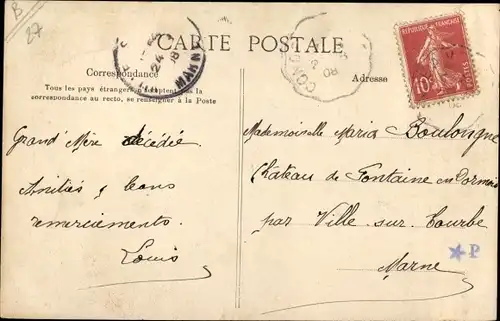 B
27
CARTE POSTALE
Correspondance
Tous les pays étrangers n'acceptent pas la
correspondance au recto, se renseigner à la Poste
Grand' Mère décédée
Amitiés & bons
remerciements.
Louis
MARNE
Adresse
REPUBLIQUE FRANÇAISE
10
POSTES
Mademoiselle Maria Boulongne
Château de Fontaine en Dormois
par Ville sur Tourbe
Marne
P